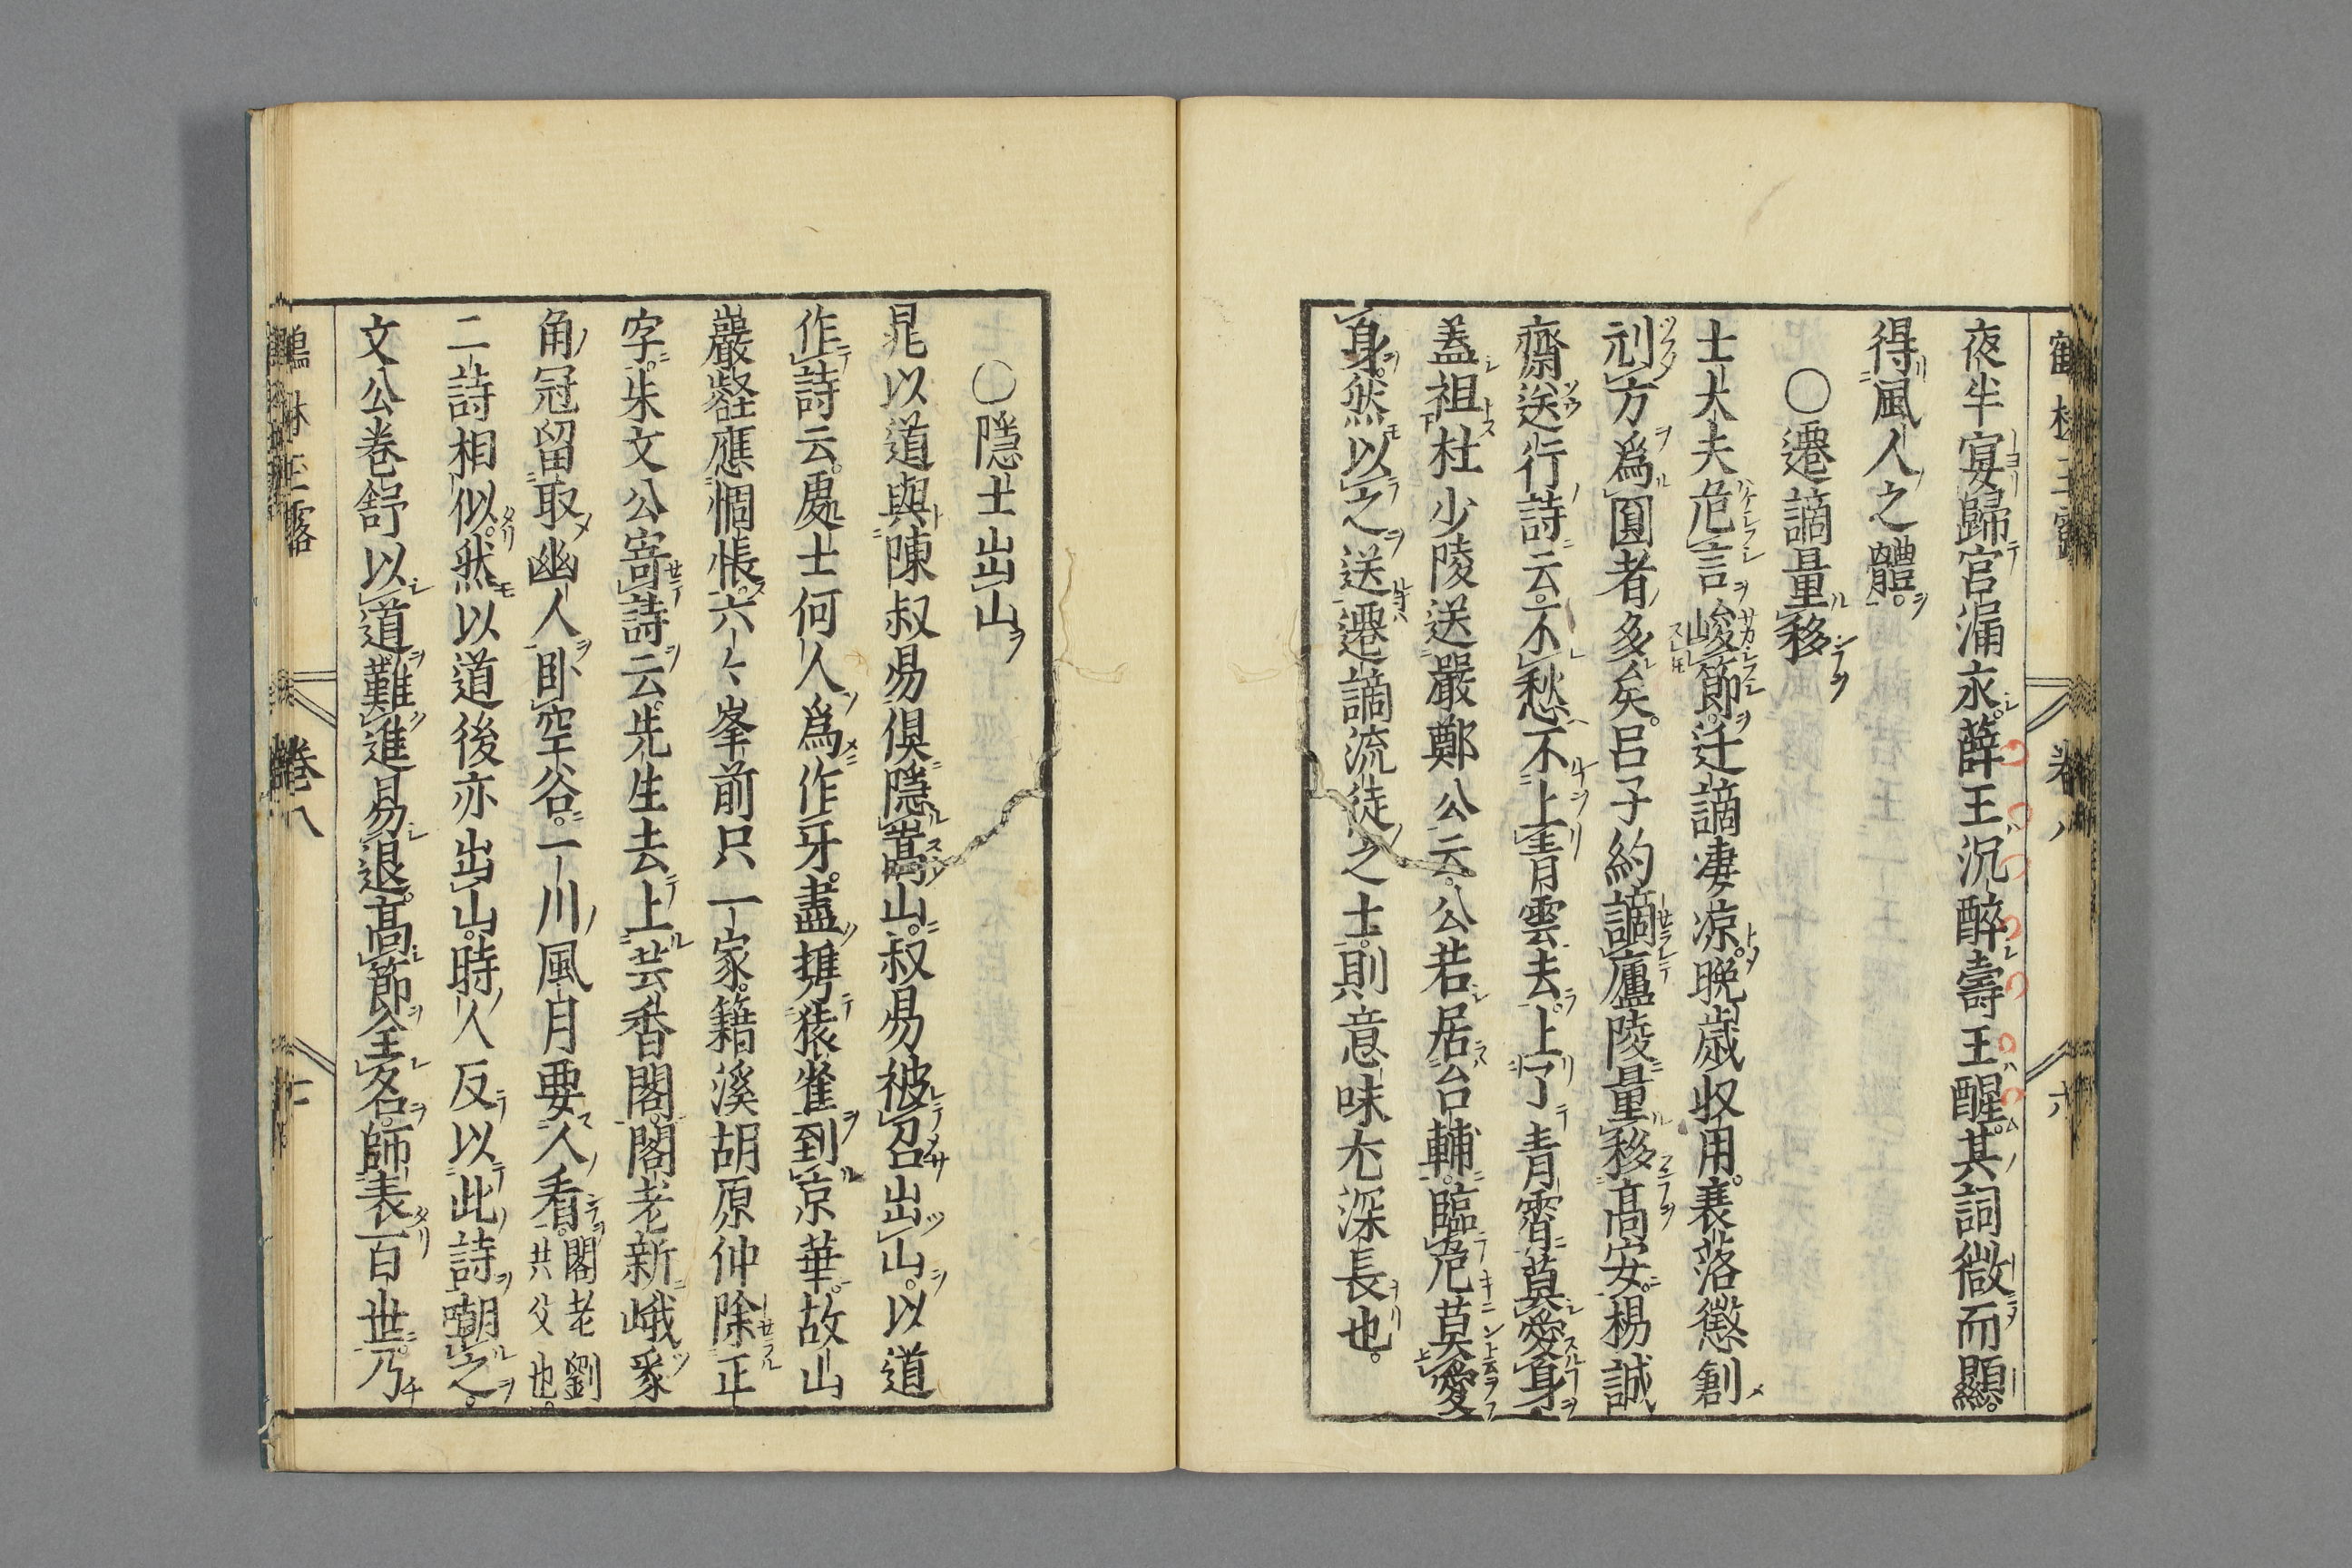 夜半宴歸宮漏永。薛王沉醉壽王醒。其詞微而顯。
得風人之體。
○遷謫量移
士大夫危言峻節。迁謫凄凉。晚歳収用。衰落懲創
刓方爲圓者多矣。吕子約謫廬陵量移髙安。楊誠
齋送行詩云。不愁不上青雲去。上了青霄莫愛身。
盖祖杜少陵送嚴鄭公云。公若居台輔。臨危莫愛
身。然以之送遷謫流徒之士。則意味尤深長也。
○隱士出山
晁以道與陳叔易俱隱嵩山。叔易被召出山。以道
作詩云。處士何人爲作牙。盡携猿雀到京華。故山
巖壑應惆悵。六六峯前只一家。籍溪胡原仲除正
字。朱文公寄詩云。先生去上芸香閣。閣老新峨豸
角冠留取幽人卧空谷。一川風月要人看。閣老劉共父也。
二詩相似。然以道後亦出山。時人反以此詩嘲之。
文公巻舒以道。難進易退。髙節全名。師表百世。乃
鶴林玉露 巻八